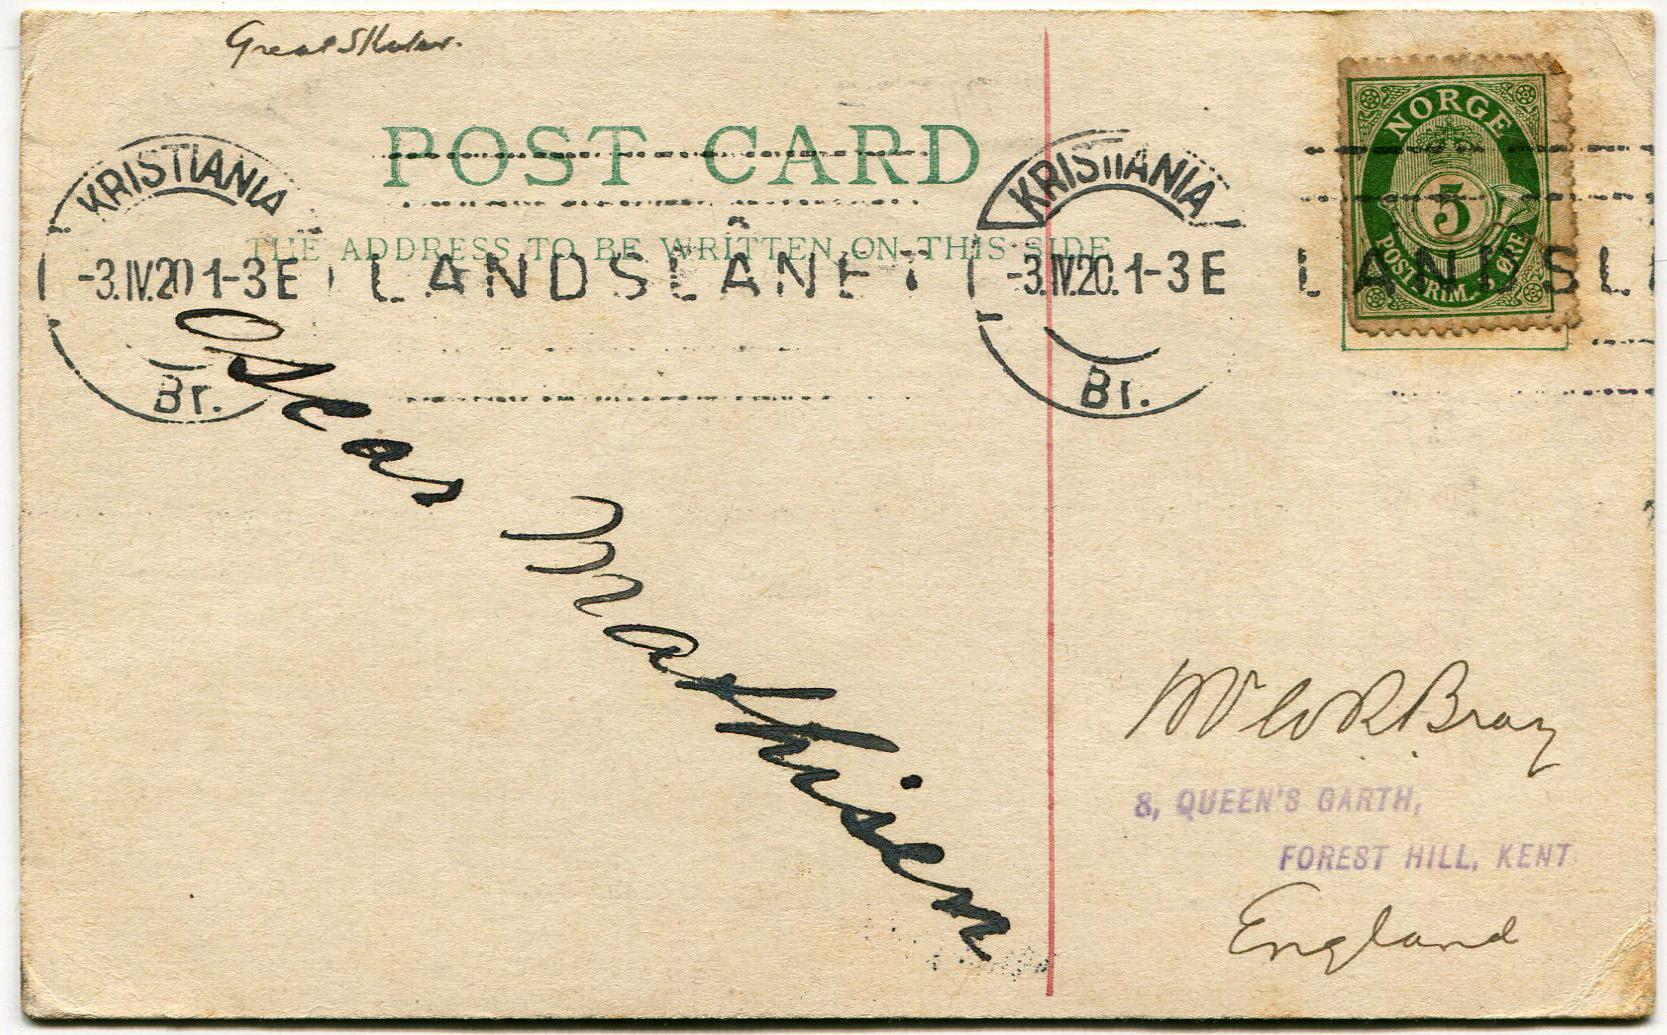 Great Skater.
POST CARD
THE ADDRESS TO BE WRITTEN ON THIS SIDE
NORGE
5
POSTFRIM. 5 ØRE
KRISTIANIA
-3.IV.20 1-3 E
Br.
LANDSLÅNET
KRISTIANIA
-3.IV.20. 1-3 E
Br.
LANDSL
Oscar Mathisen
Mr W R Bray
8, QUEEN'S GARTH,
FOREST HILL, KENT
England